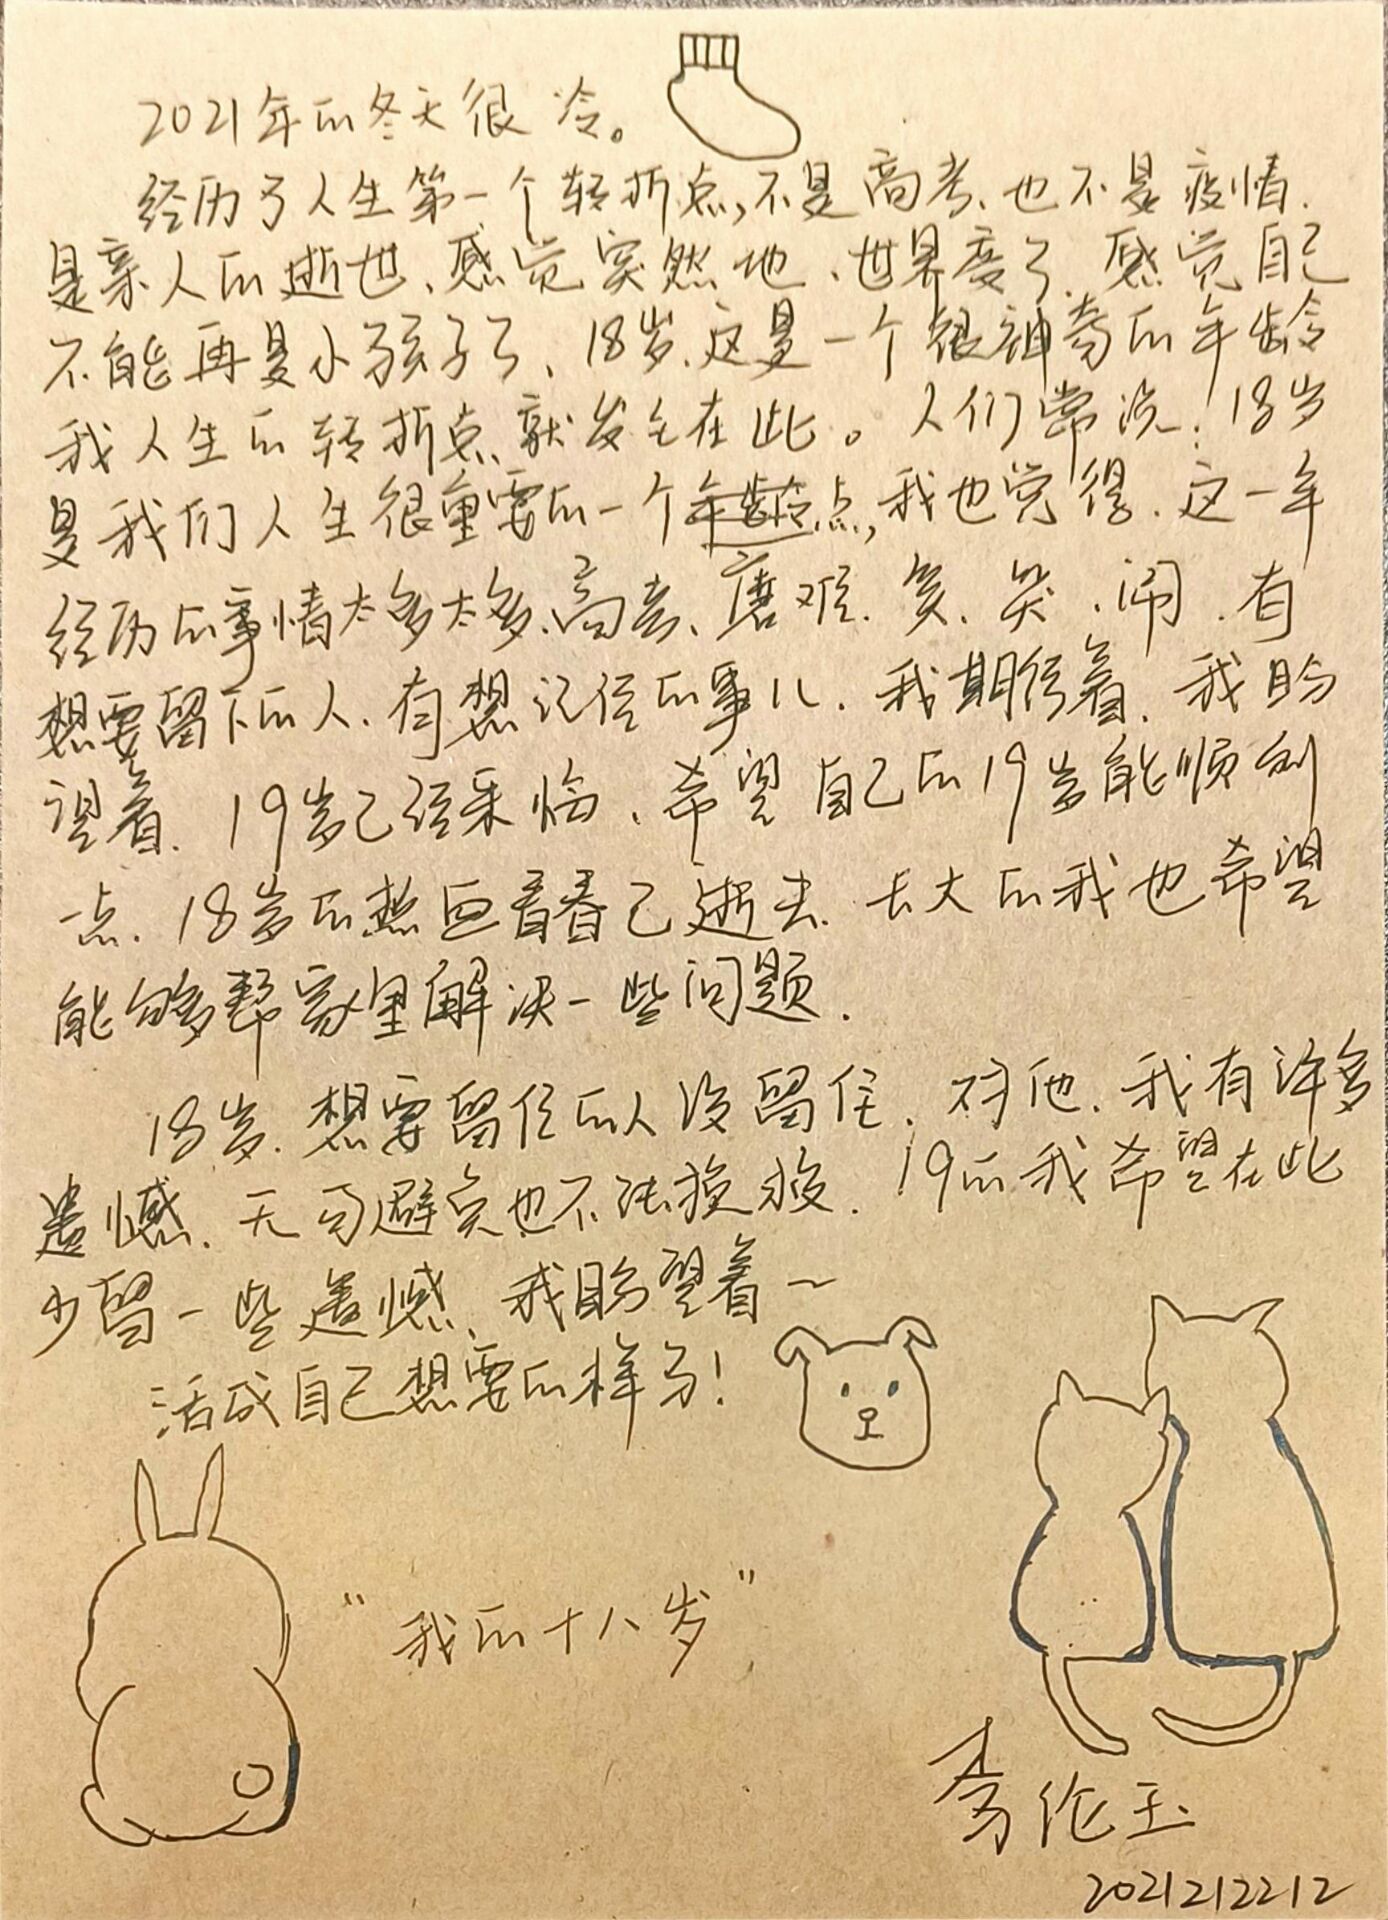 2021年的冬天很冷。
经历了人生第一个转折点,不是高考、也不是疫情.
是亲人的逝世、感觉突然地、世界变了.感觉自己
不能再是小孩子了、18岁、这是一个很神奇的年龄
我人生的转折点就发生在此。人们常说:18岁
是我们人生很重要的一个年龄点,我也觉得.这一年
经历的事情太多太多、高考、磨难.笑、哭、闹.有
想要留下的人.有想记住的事儿.我期待着.我盼
望着.19岁已经来临、希望自己的19岁能顺利
一点.18岁的热血看着已逝去.长大的我也希望
能够帮家里解决一些问题.
18岁.想要留住的人没留住.对他.我有许多
遗憾.无可避免也不法挽救.19的我希望在此
少留一些遗憾、我盼望着~
活成自己想要的样子!
"我的十八岁"
2021212212